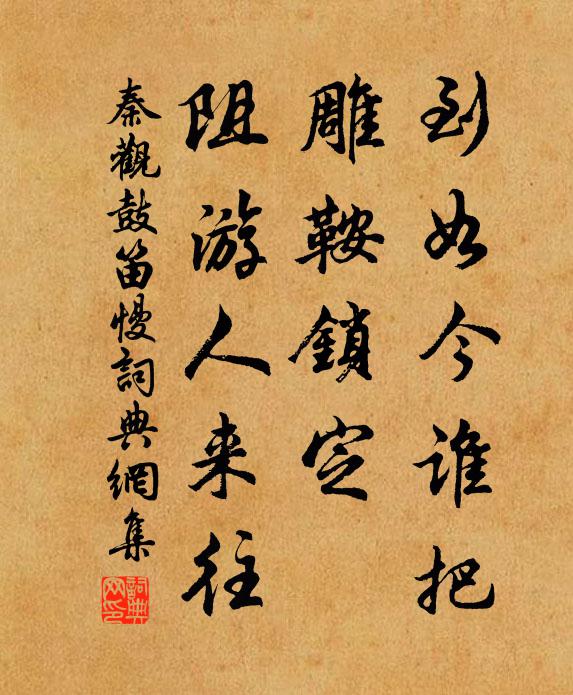 到如今谁把
雕鞍鎖定
阻游人来往
秦觀鼓笛慢詞典網集
詞典网印